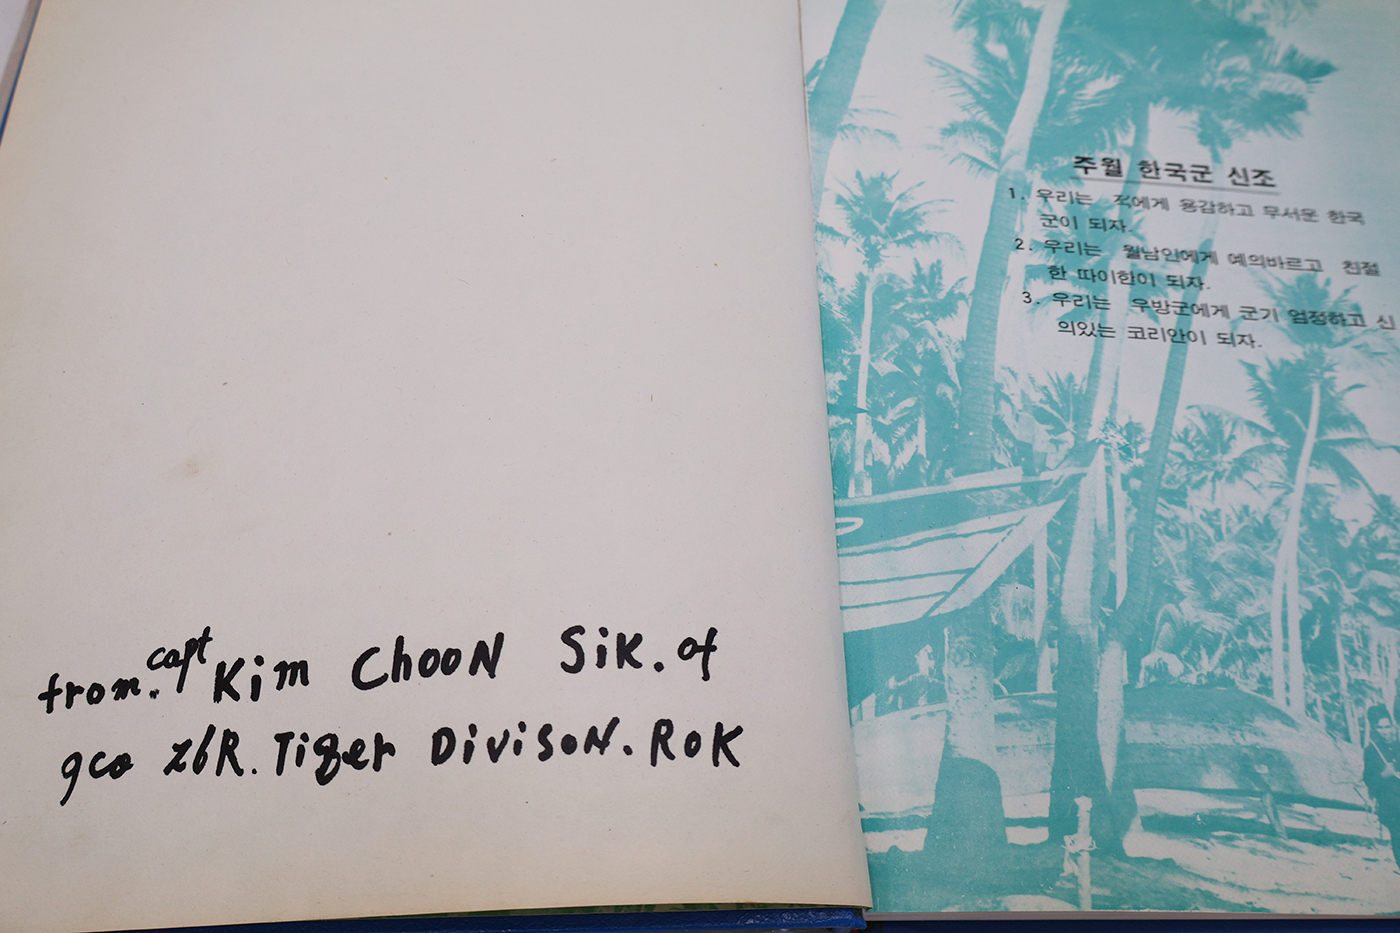 from. capt Kim ChooN SiK. of
9co 26R. Tiger DivisoN. RoK
주월 한국군 신조
1. 우리는 적에게 용감하고 무서운 한국
군이 되자.
2. 우리는 월남인에게 예의바르고 친절
한 따이한이 되자.
3. 우리는 우방군에게 군기 엄정하고 신
의있는 코리안이 되자.